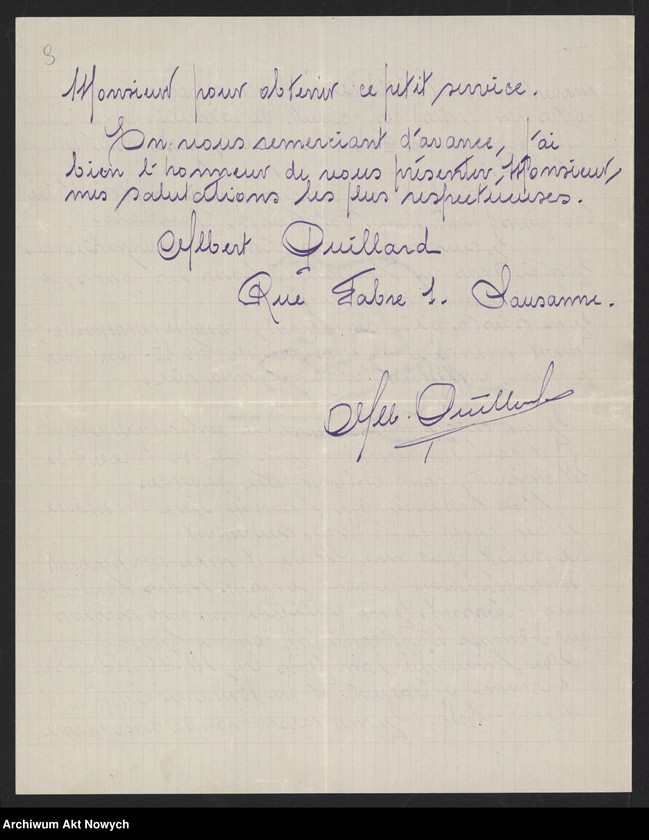 3
Monsieur pour obtenir ce petit service.
En vous remerciant d'avance, j'ai
bien l'honneur de vous présenter, Monsieur,
mes salutations les plus respectueuses.
Albert Quillard
Rue Fabre 1. Lausanne.
Alb. Quillard
Archiwum Akt Nowych